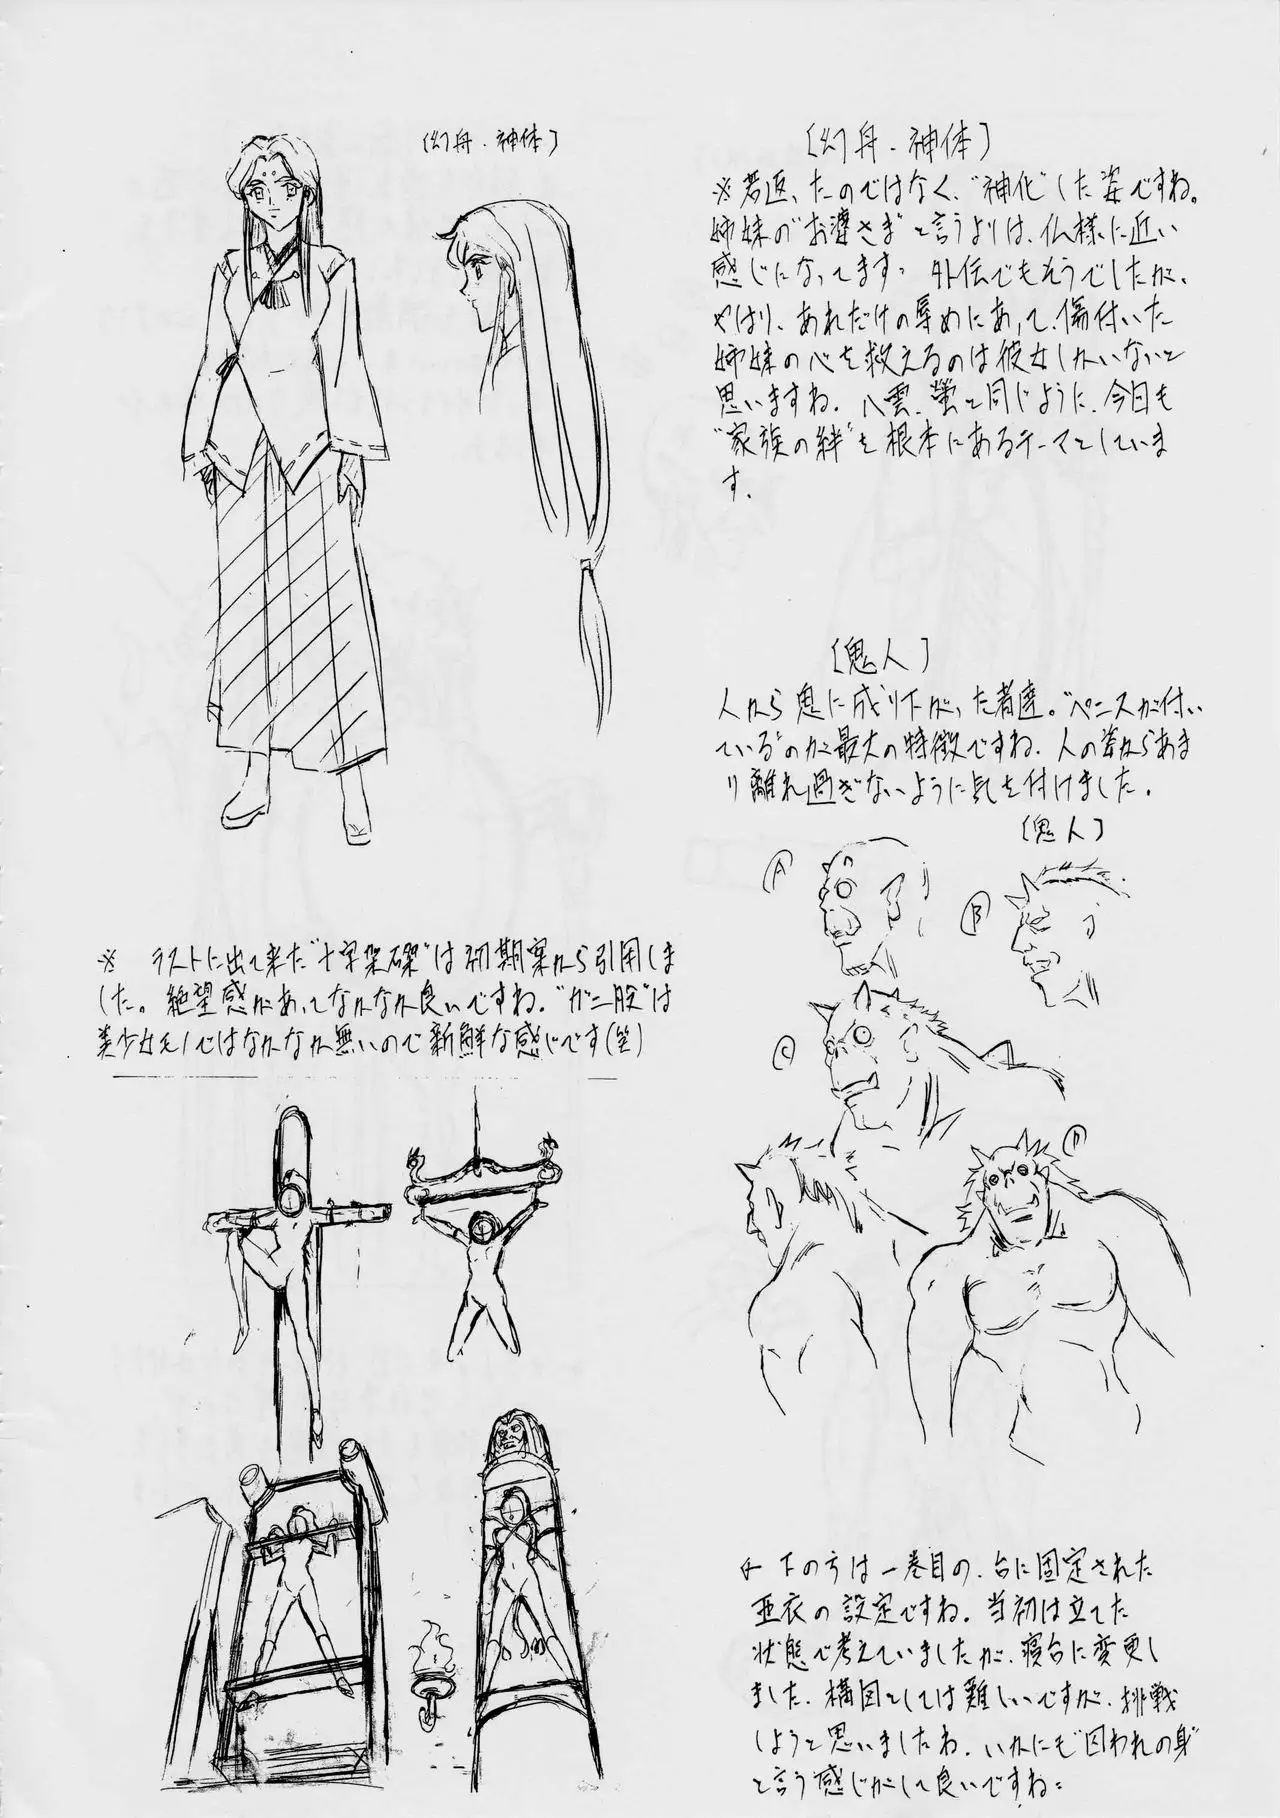 〔幻舟・神体〕
〔幻舟・神体〕
※若返ったのではなく、"神化"した姿ですね。
姉妹の"お婆さま"と言うよりは、仏様に近い
感じになってます。外伝でもそうでしたが、
やはり、あれだけの辱めにあって、傷付いた
姉妹の心を救えるのは彼女しかいないと
思いますね。八雲、蛍と同じように、今日も
"家族の絆"を根本にあるテーマとしていま
す。
〔鬼人〕
人から鬼に成り下がった者達。"ペニスが付い
ている"のが最大の特徴ですね。人の姿からあま
り離れ過ぎないように気を付けました。
〔鬼人〕
A
B
C
D
※ ラストに出て来た"十字架磔"は初期案から引用しま
した。絶望感があってなかなか良いですね。"ガニ股"は
美少女モノではなかなか無いので新鮮な感じです(笑)
下の方は一巻目の、台に固定された
亜衣の設定ですね。当初は立てた
状態で考えていましたが、寝台に変更し
ました。構図としては難しいですが、挑戦
しようと思いましたね。いかにも"囚われの身"
と言う感じがして良いですね。